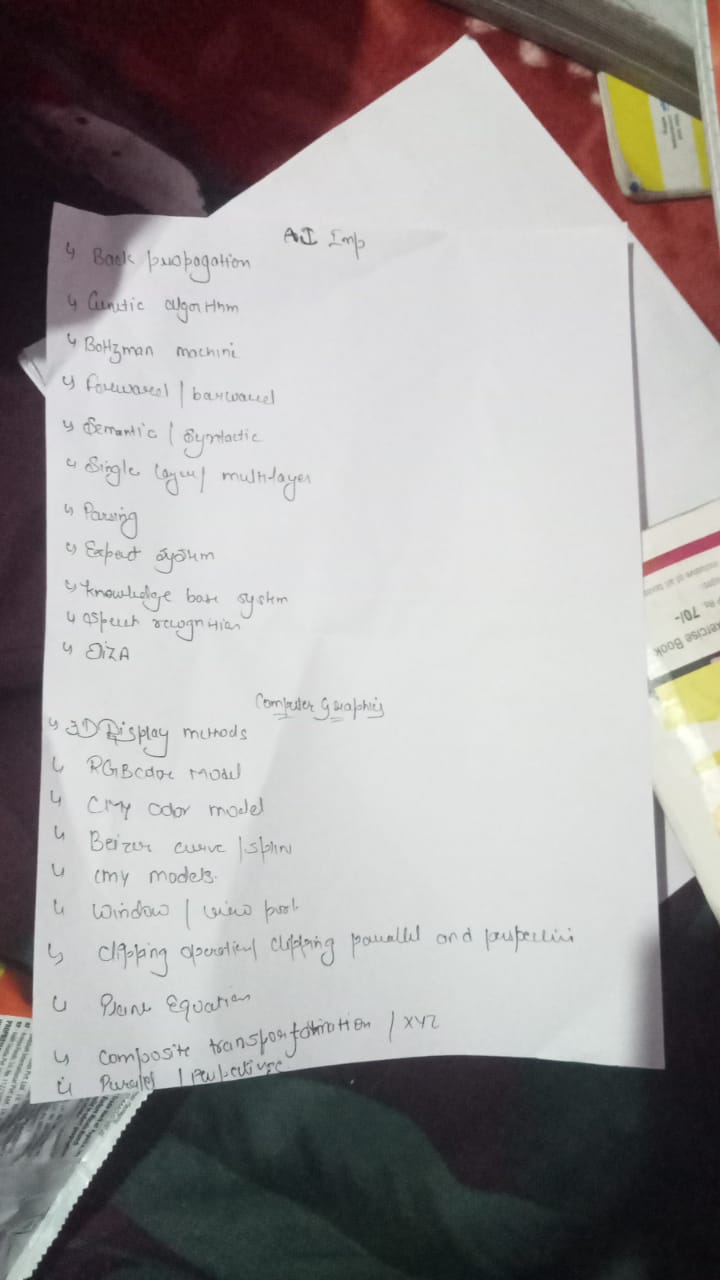 AI Imp
↳ Back propogation
↳ Genetic algorithm
↳ Boltzman machine
↳ forward / barward
↳ Semantic / Syntactic
↳ Single layer / multilayer
↳ Parsing
↳ Expert system
↳ knowledge base system
↳ Speech recognition
↳ ElizA
Computer Graphics
↳ 3D Display methods
↳ RGB color Model
↳ CMY color model
↳ Beizer curve / spline
↳ CMY models.
↳ Window / view port
↳ Clipping operation / clipping parallel and
↳ Plane Equation
↳ Composite / XYZ
↳
exercise Book
70/-